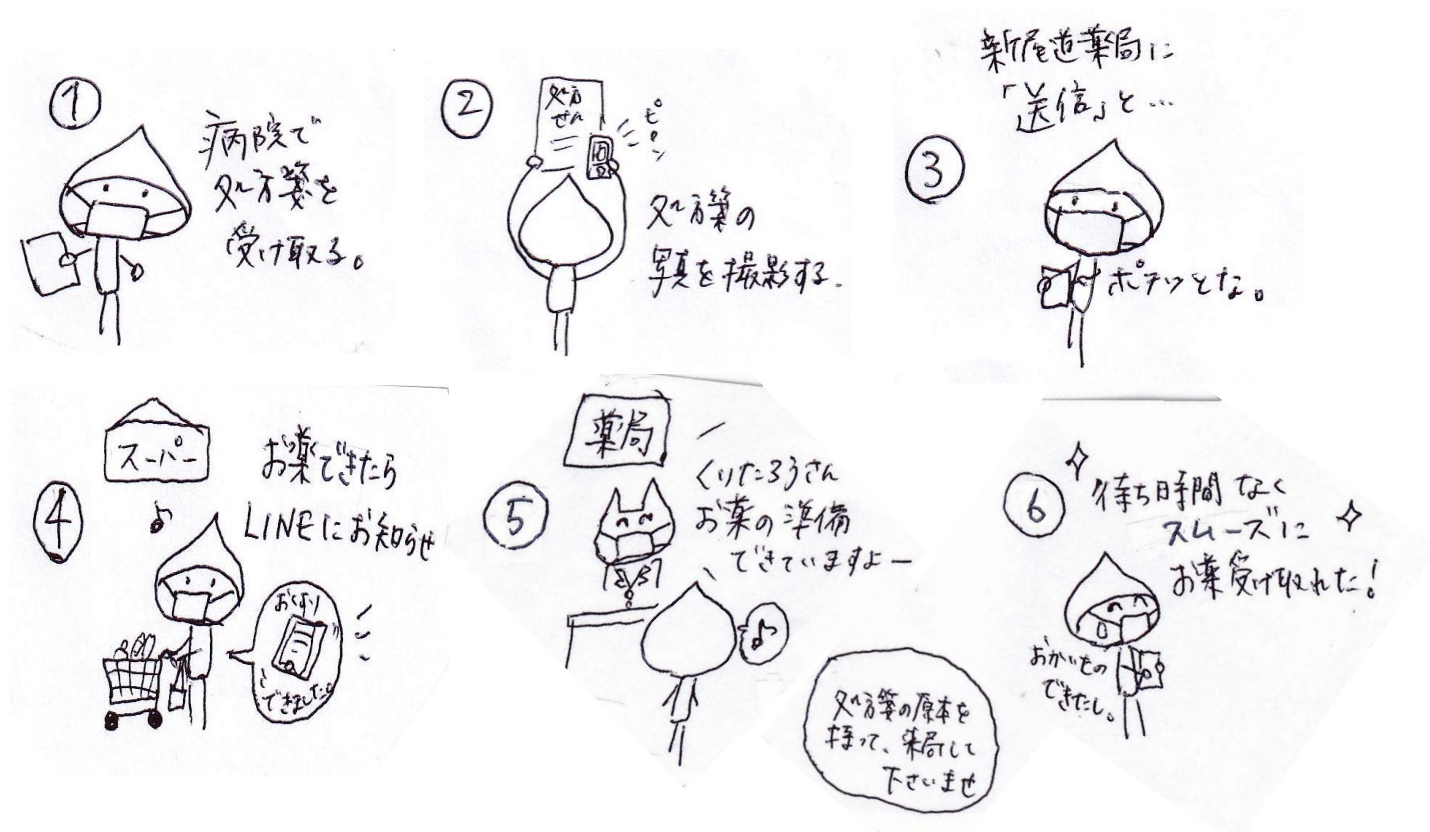 ①
病院で
処方箋を
受け取る。
②
処方
せん
ピロン
処方箋の
写真を撮影する.
新尾道薬局に
「送信」と…
③
ポチッとな。
④
スーパー
お薬できたら
LINEにお知らせ
♪
おくすり
できました。
⑤
薬局
くりたろうさん
お薬の準備
できていますよー
♪
処方箋の原本を
持って、来局して
下さいませ
⑥
待ち時間なく
スムーズに
お薬受け取れた!
おかいもの
できたし。